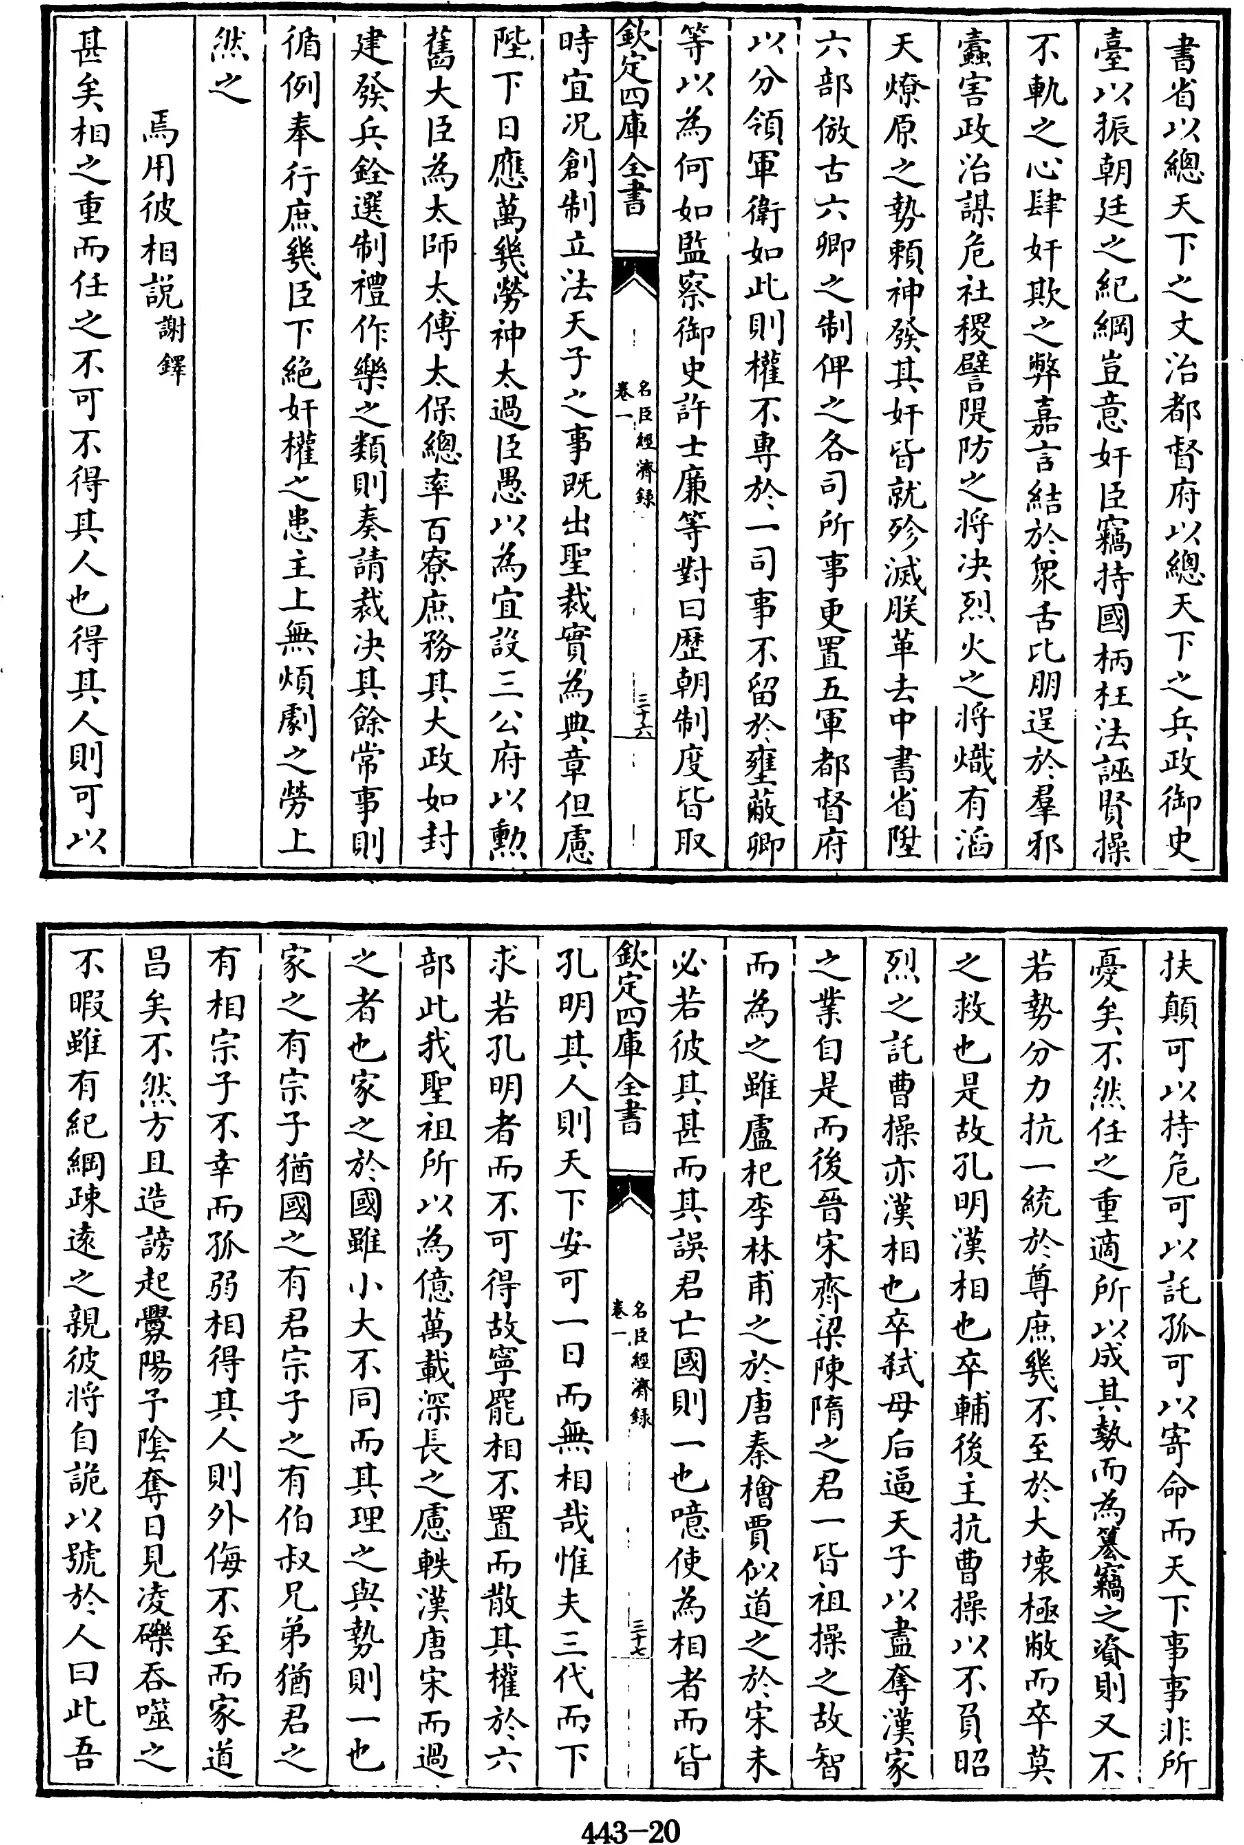 書省以總天下之文治都督府以總天下之兵政御史
臺以振朝廷之紀綱豈意奸臣竊持國柄枉法誣賢操
不軌之心肆奸欺之弊嘉言結於衆舌比朋逞於羣邪
蠹害政治謀危社稷譬隄防之將决烈火之將熾有滔
天燎原之勢賴神發其奸皆就殄滅朕革去中書省陞
六部倣古六卿之制俾之各司所事更置五軍都督府
以分領軍衛如此則權不專於一司事不留於壅蔽卿
等以為何如監察御史許士廉等對曰歷朝制度皆取
欽定四庫全書
名臣經濟錄
卷一
三十六
時宜况創制立法天子之事既出聖裁實為典章但慮
陛下日應萬幾勞神太過臣愚以為宜設三公府以勲
舊大臣為太師太傅太保總率百寮庶務其大政如封
建發兵銓選制禮作樂之類則奏請裁决其餘常事則
循例奉行庶幾臣下絶奸權之患主上無煩劇之勞上
然之
焉用彼相説謝鐸
甚矣相之重而任之不可不得其人也得其人則可以
扶顛可以持危可以託孤可以寄命而天下事事非所
憂矣不然任之重適所以成其勢而為簒竊之資則又不
若勢分力抗一統於尊庶幾不至於大壞極敝而卒莫
之救也是故孔明漢相也卒輔後主抗曹操以不負昭
烈之託曹操亦漢相也卒弑母后逼天子以盡奪漢家
之業自是而後晉宋齊梁陳隋之君一皆祖操之故智
而為之雖盧杞李林甫之於唐秦檜賈似道之於宋未
必若彼其甚而其誤君亡國則一也噫使為相者而皆
欽定四庫全書
名臣經濟録
卷一
三十七
孔明其人則天下安可一日而無相哉惟夫三代而下
求若孔明者而不可得故寧罷相不置而散其權於六
部此我聖祖所以為億萬載深長之慮軼漢唐宋而過
之者也家之於國雖小大不同而其理之與勢則一也
家之有宗子猶國之有君宗子之有伯叔兄弟猶君之
有相宗子不幸而孤弱相得其人則外侮不至而家道
昌矣不然方且造謗起釁陽予陰奪日見凌礫呑噬之
不暇雖有紀綱疎遠之親彼將自詭以號於人曰此吾
443-20